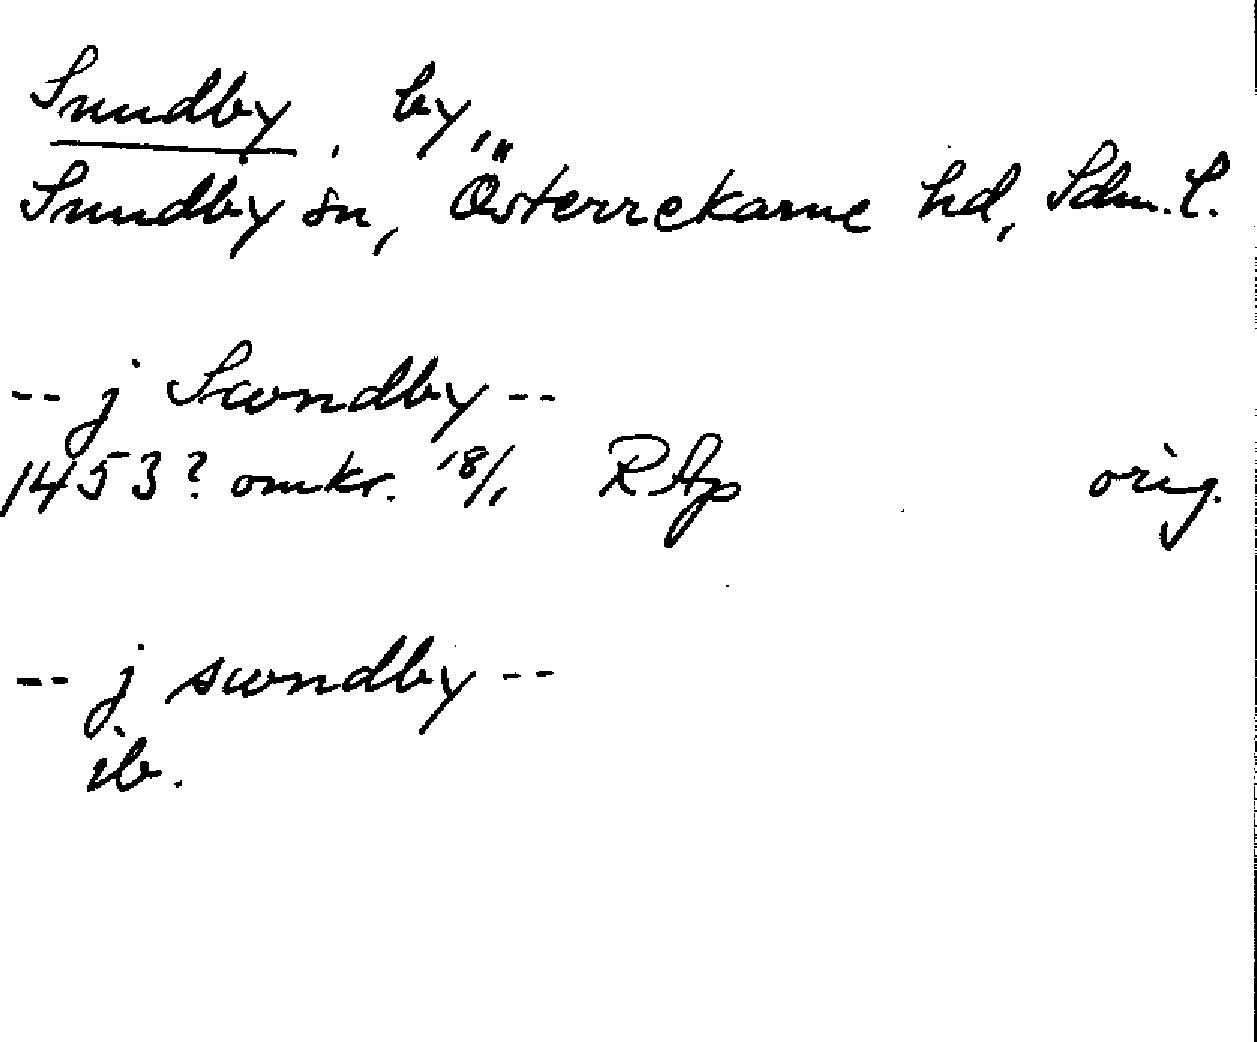 Sundby, by,
Sundby sn, Österrekarne hd, Sdm. l.
-- j Swndby --
1453? omkr. 18/1 RAp orig.
-- j swndby --
ib.